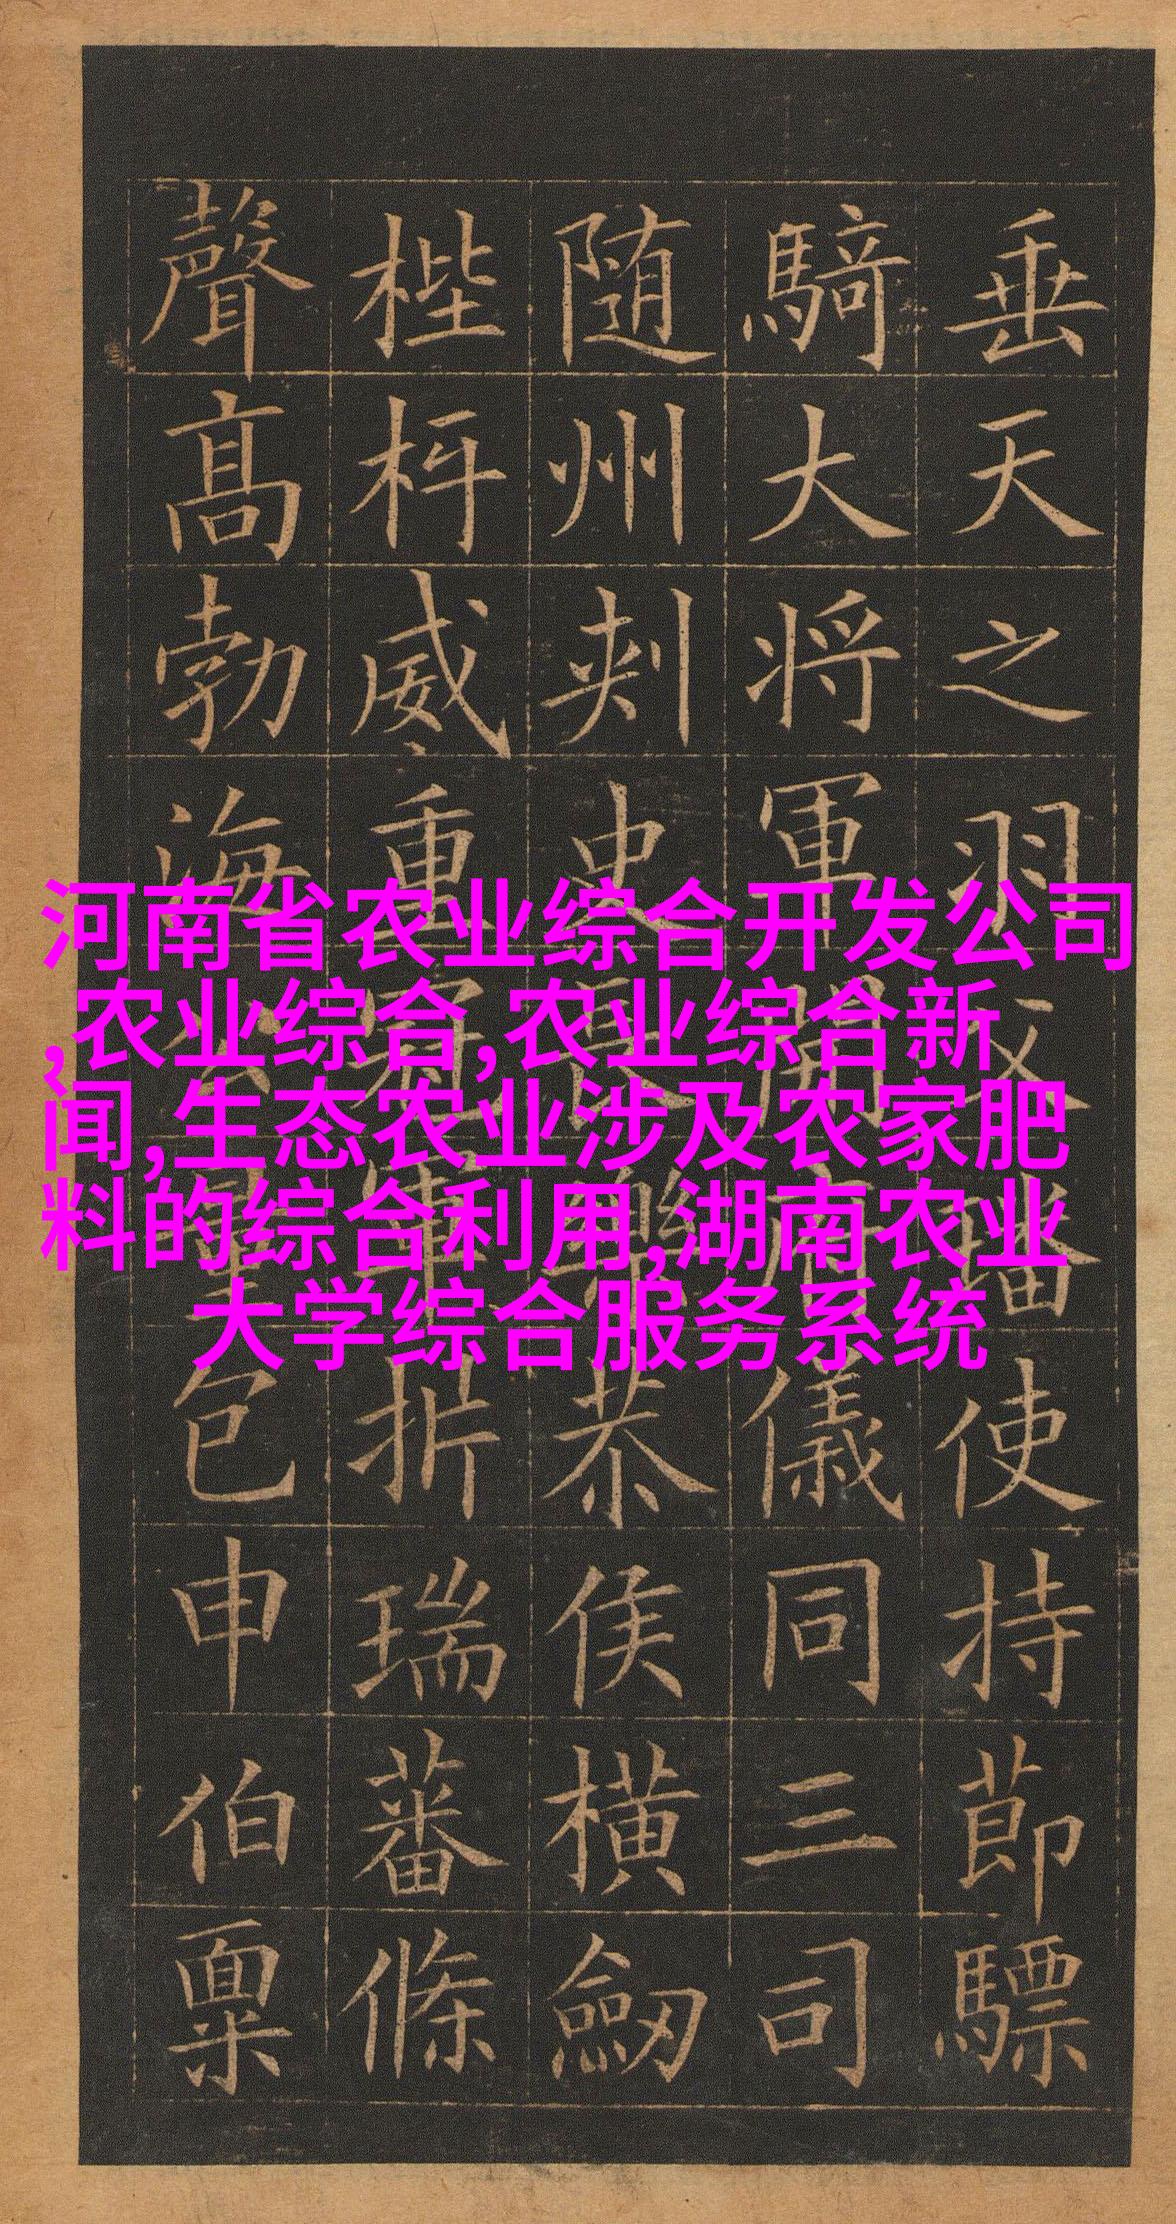 垂天之羽父璠使持節驃
騎大将軍開府儀同三司
随州刾史長樂恭侯橫劒
梐枑威重冠軍折瑞蕃條
聲髙勃海公量包申伯稟
河南省农业综合开发公司
,农业综合,农业综合新
闻,生态农业涉及农家肥
料的综合利用,湖南农业
大学综合服务系统